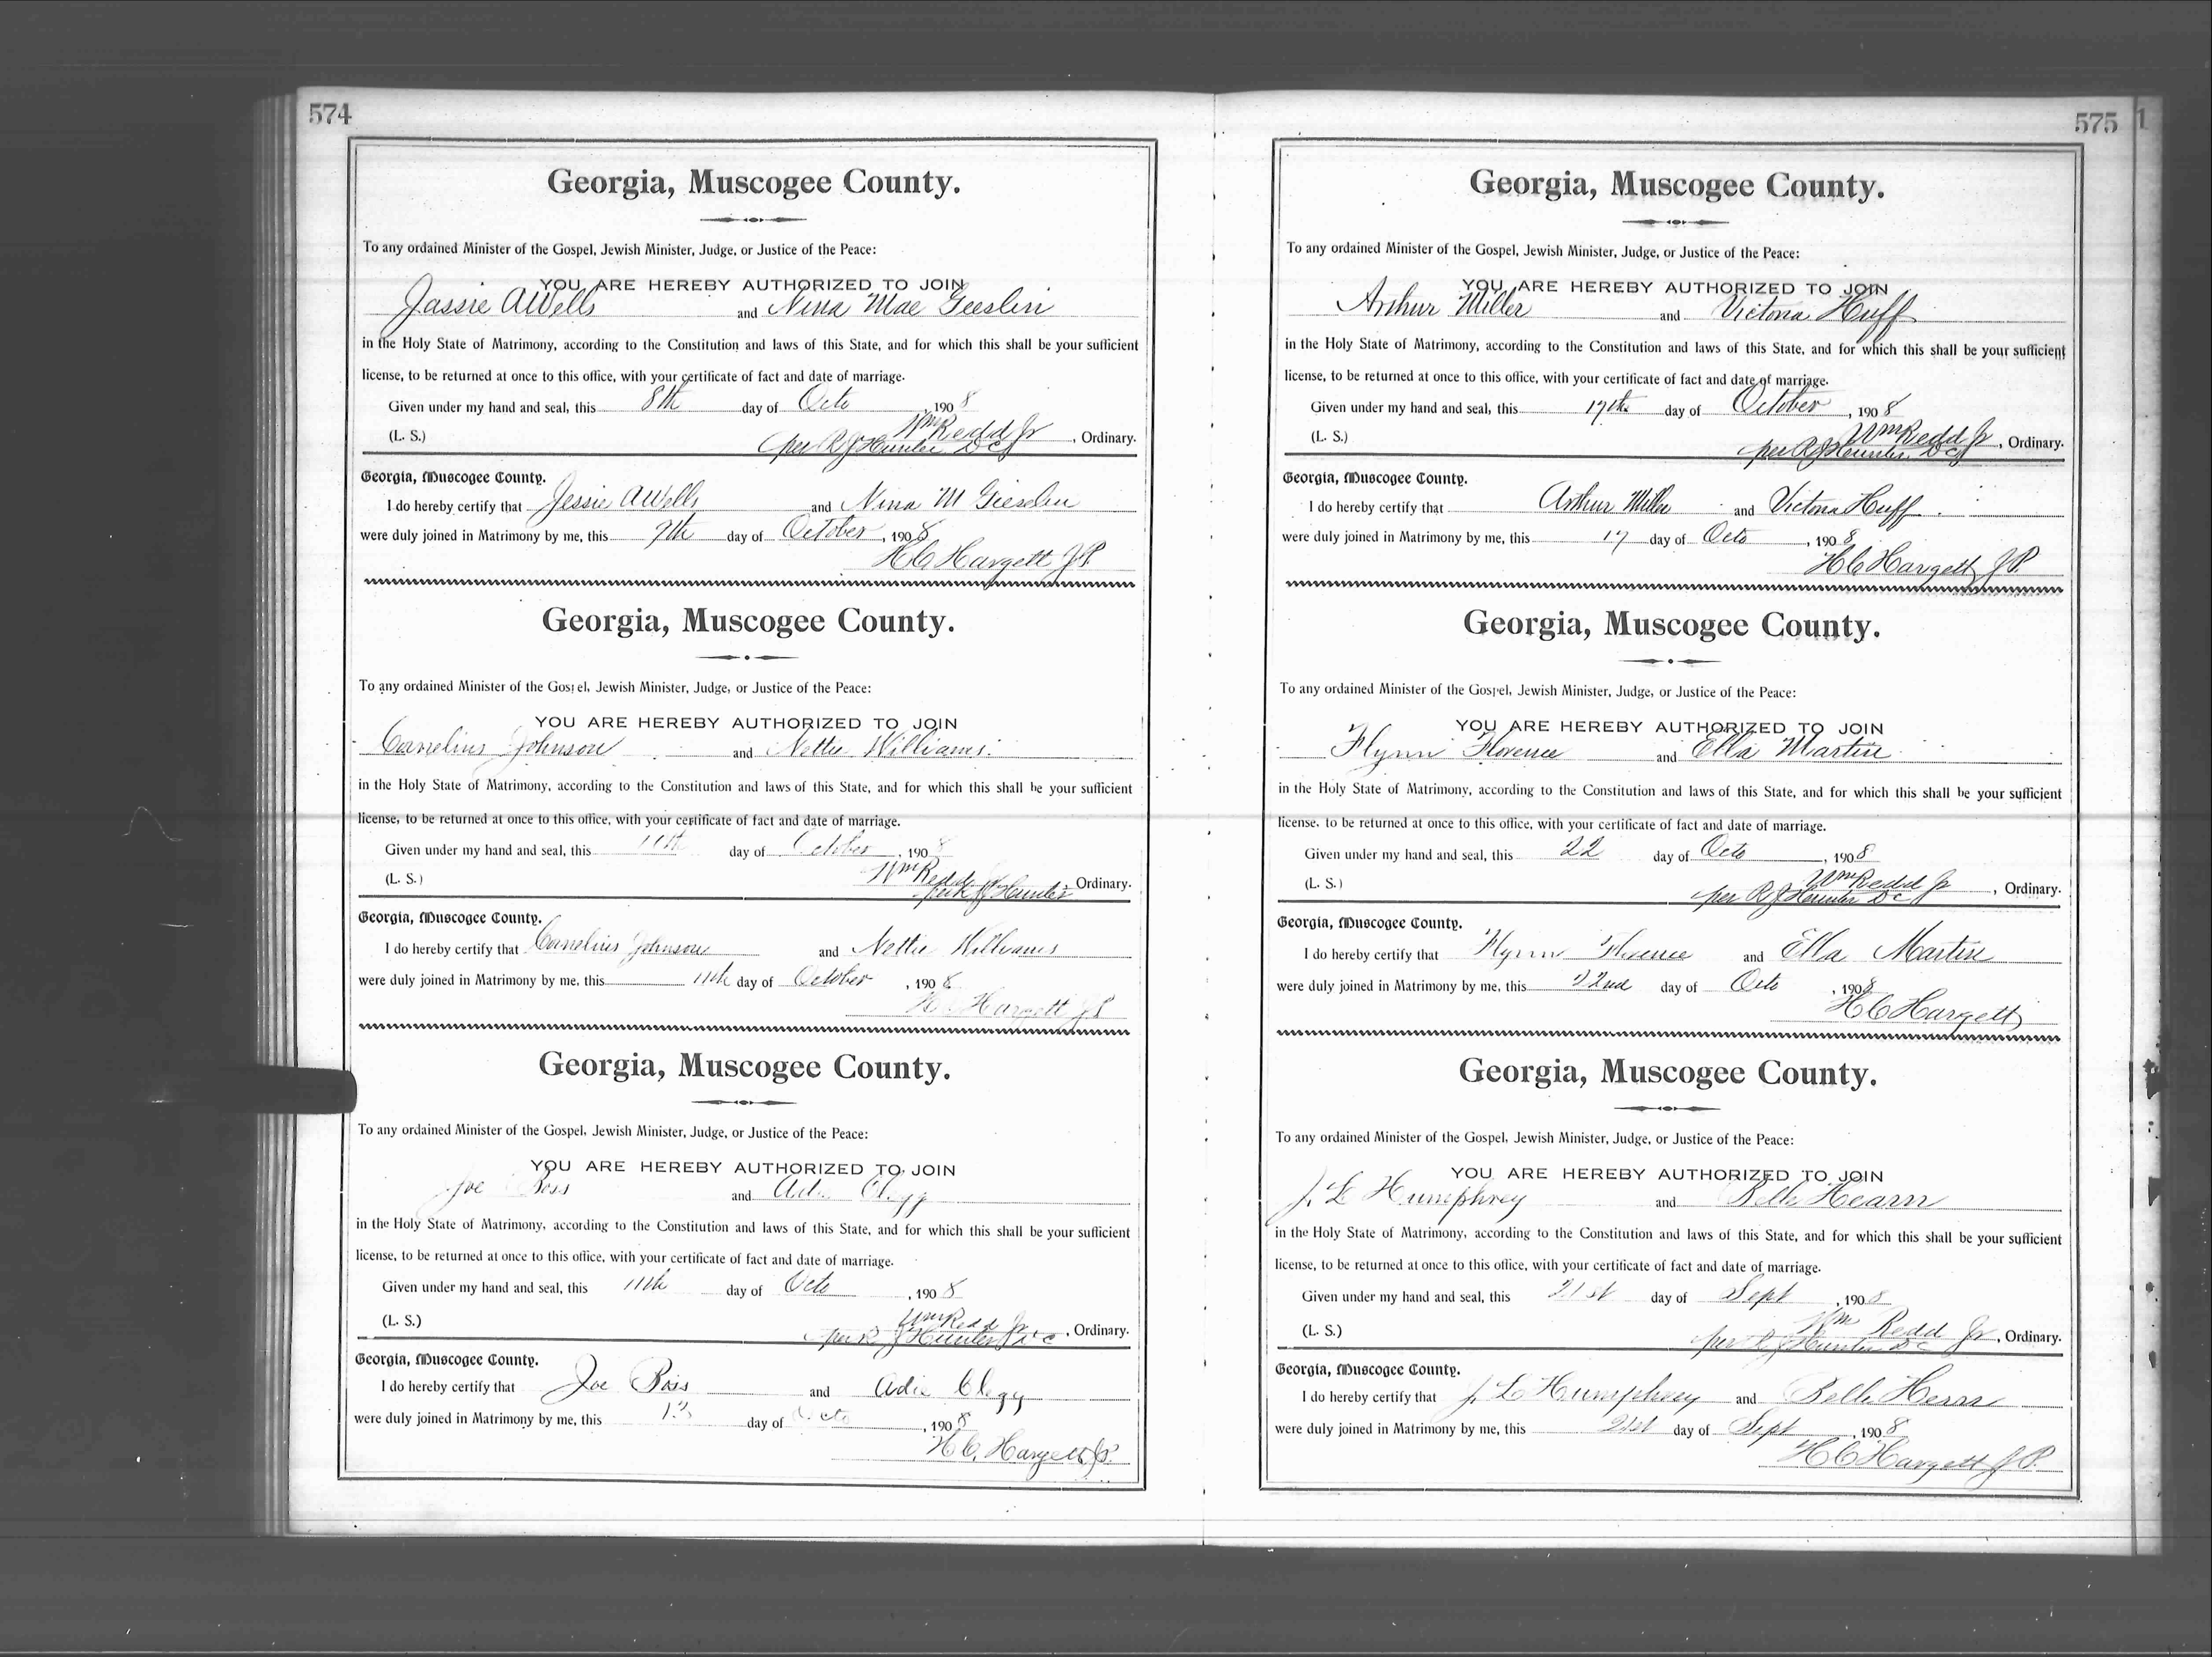 574
Georgia, Muscogee County.
To any ordained Minister of the Gospel, Jewish Minister, Judge, or Justice of the Peace:
YOU ARE HEREBY AUTHORIZED TO JOIN
Jassie A Wells and Nina Mae Geeslin
in the Holy State of Matrimony, according to the Constitution and laws of this State, and for which this shall be your sufficient
license, to be returned at once to this office, with your certificate of fact and date of marriage.
Given under my hand and seal, this 8th day of Octo , 1908
Wm Redd Jr
(L. S.) per R J Hunter DC , Ordinary.
Georgia, Muscogee County.
I do hereby certify that Jessie A Wells and Nina M Gieselin
were duly joined in Matrimony by me, this 9th day of October , 1908
H C Hargett J P.
Georgia, Muscogee County.
To any ordained Minister of the Gospel, Jewish Minister, Judge, or Justice of the Peace:
YOU ARE HEREBY AUTHORIZED TO JOIN
Carnelius Johnson and Nettie Williams.
in the Holy State of Matrimony, according to the Constitution and laws of this State, and for which this shall be your sufficient
license, to be returned at once to this office, with your certificate of fact and date of marriage.
Given under my hand and seal, this 11th day of October , 1908
Wm Redd
(L. S.) per R J Hunter , Ordinary.
Georgia, Muscogee County.
I do hereby certify that Carnelius Johnson and Nettie Williams
were duly joined in Matrimony by me, this 11th day of October , 1908
H C Hargett J P
Georgia, Muscogee County.
To any ordained Minister of the Gospel, Jewish Minister, Judge, or Justice of the Peace:
YOU ARE HEREBY AUTHORIZED TO JOIN
Joe Ross and Adie Clegg
in the Holy State of Matrimony, according to the Constitution and laws of this State, and for which this shall be your sufficient
license, to be returned at once to this office, with your certificate of fact and date of marriage.
Given under my hand and seal, this 11th day of Octo , 1908
Wm Redd Jr
(L. S.) per R J Hunter D C , Ordinary.
Georgia, Muscogee County.
I do hereby certify that Joe Ross and Adie Clegg
were duly joined in Matrimony by me, this day of Octo , 1908
H C. Hargett J P.
575
Georgia, Muscogee County.
To any ordained Minister of the Gospel, Jewish Minister, Judge, or Justice of the Peace:
YOU ARE HEREBY AUTHORIZED TO JOIN
Arthur Miller and Victoria Huff
in the Holy State of Matrimony, according to the Constitution and laws of this State, and for which this shall be your sufficient
license, to be returned at once to this office, with your certificate of fact and date of marriage.
Given under my hand and seal, this 17th day of October , 1908
Wm Redd Jr
(L. S.) per R J Hunter DC , Ordinary.
Georgia, Muscogee County.
I do hereby certify that Arthur Miller and Victoria Huff
were duly joined in Matrimony by me, this 17 day of Octo , 1908
H C Hargett J P.
Georgia, Muscogee County.
To any ordained Minister of the Gospel, Jewish Minister, Judge, or Justice of the Peace:
YOU ARE HEREBY AUTHORIZED TO JOIN
Flynn Florence and Ella Martin
in the Holy State of Matrimony, according to the Constitution and laws of this State, and for which this shall be your sufficient
license, to be returned at once to this office, with your certificate of fact and date of marriage.
Given under my hand and seal, this 22 day of Octo , 1908
Wm Redd Jr
(L. S.) per R J Hunter DC , Ordinary.
Georgia, Muscogee County.
I do hereby certify that Flynn Florence and Ella Martin
were duly joined in Matrimony by me, this 22nd day of Octo , 1908
H C Hargett
Georgia, Muscogee County.
To any ordained Minister of the Gospel, Jewish Minister, Judge, or Justice of the Peace:
YOU ARE HEREBY AUTHORIZED TO JOIN
J. L Humphrey and Belle Hearn
in the Holy State of Matrimony, according to the Constitution and laws of this State, and for which this shall be your sufficient
license, to be returned at once to this office, with your certificate of fact and date of marriage.
Given under my hand and seal, this 21st day of Sept , 1908
Wm Redd Jr
(L. S.) per R J Hunter DC , Ordinary.
Georgia, Muscogee County.
I do hereby certify that J. L Humphrey and Belle Hearn
were duly joined in Matrimony by me, this 21st day of Sept , 1908
H C Hargett J P.